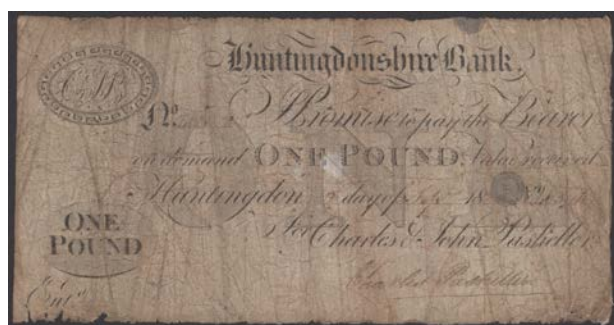 Huntingdonshire Bank.
No I Promise to pay the Bearer
on demand ONE POUND Value received
Huntingdon day of 18
For Charles & John Pasheller
ONE
POUND
Charles Pasheller
Entd